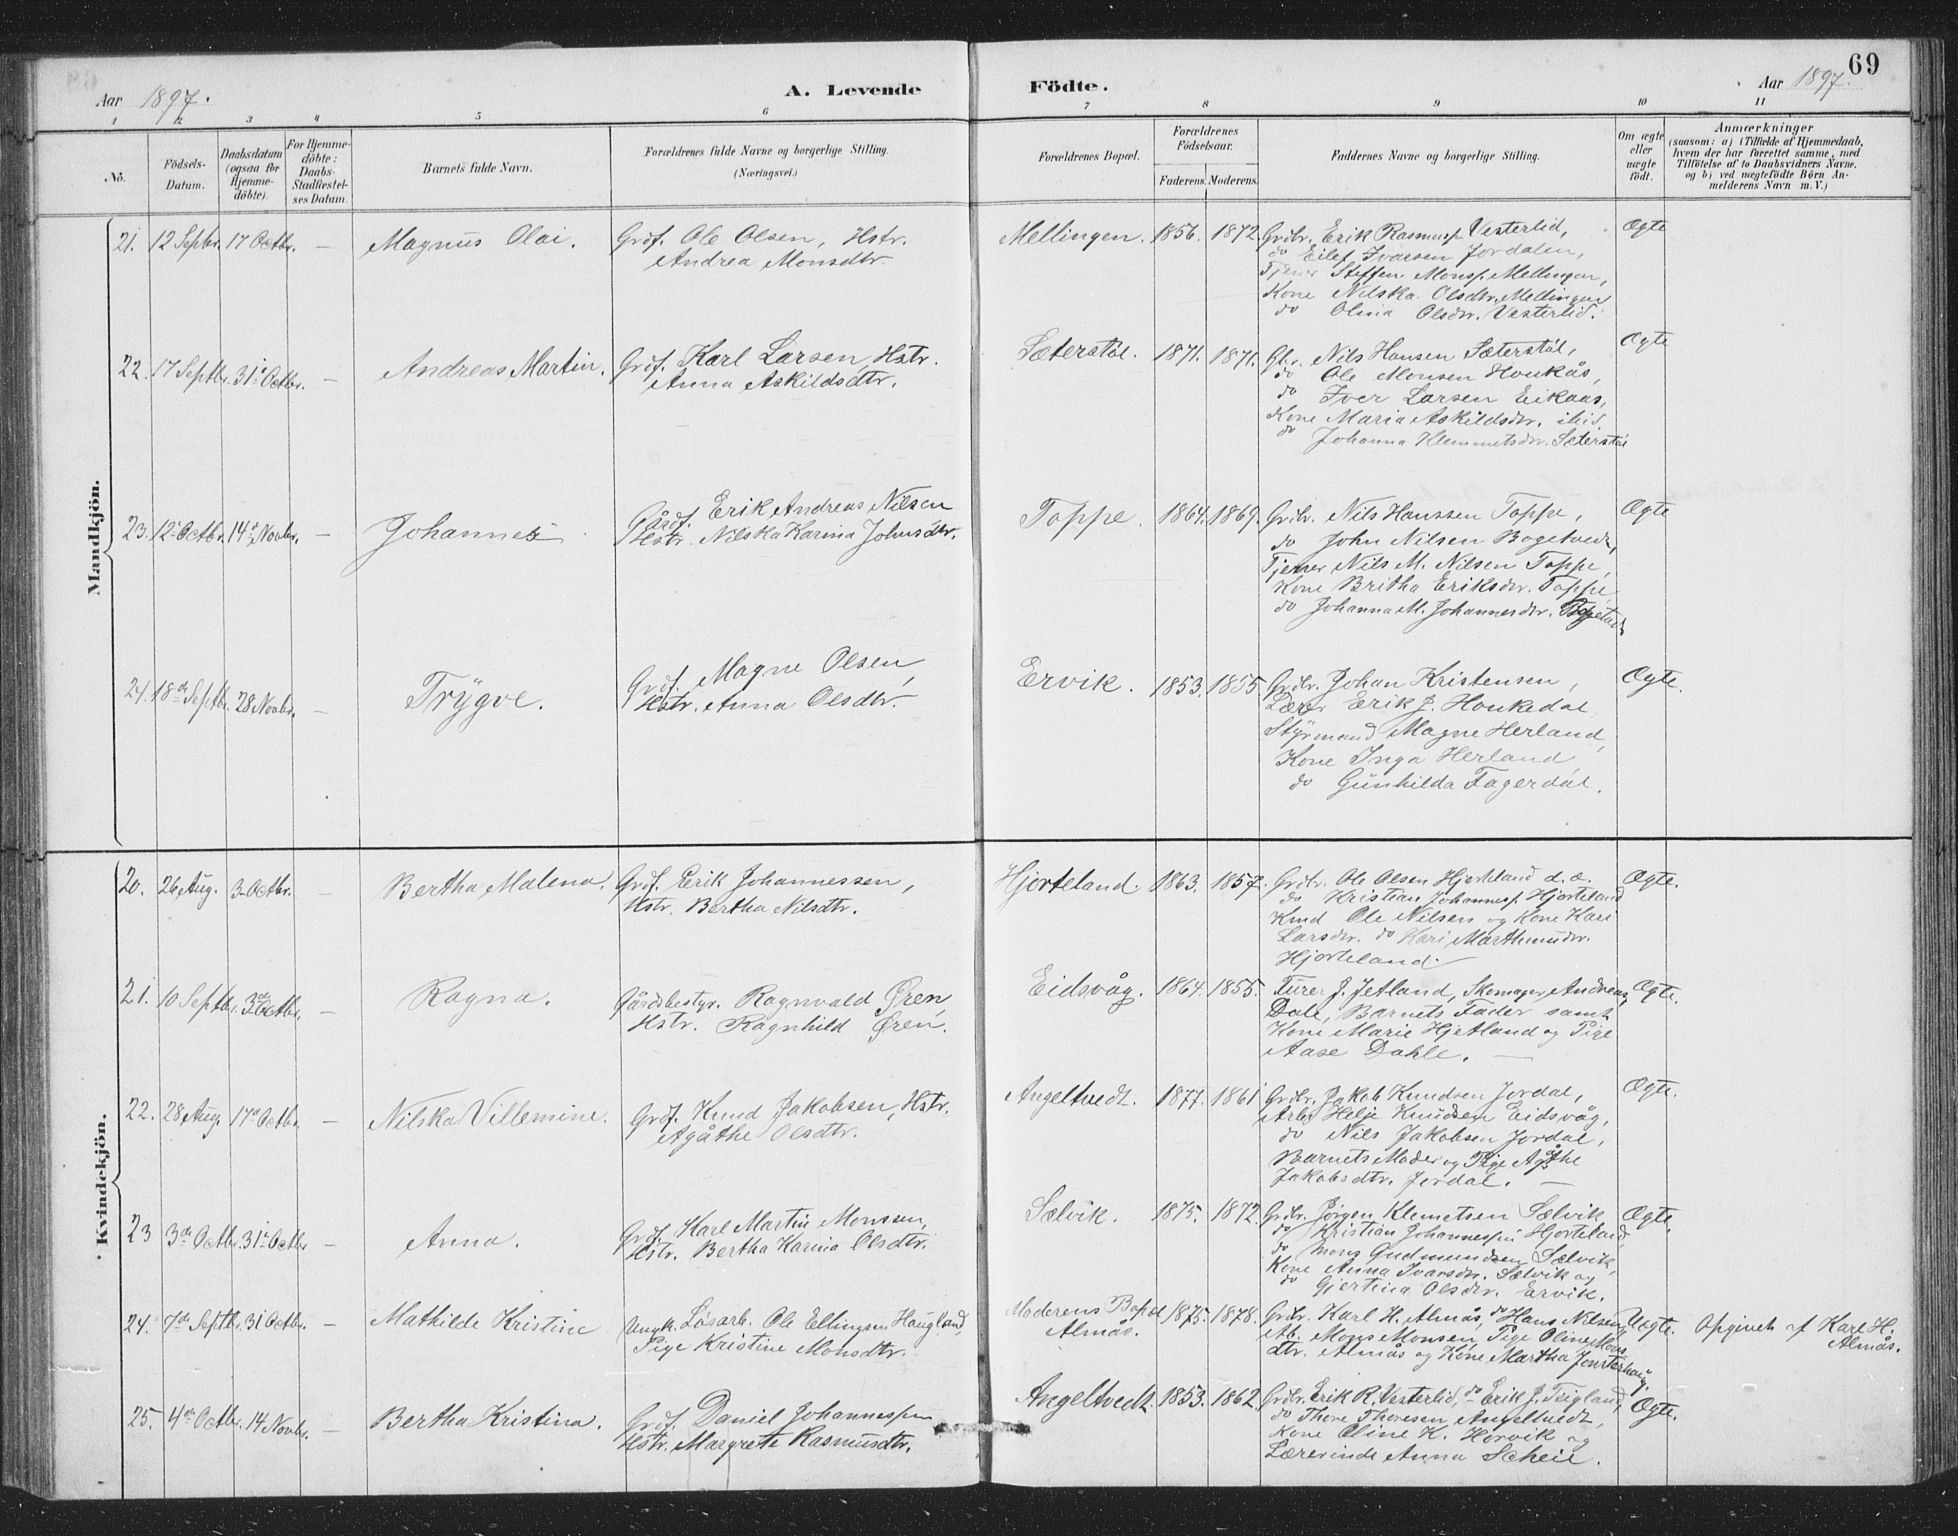 69
Aar 1897.
A. Levende
Födte.
Aar 1897.
1 2 3 4 5 6 7 8 9 10 11
No.
Födsels-
Datum.
Daabsdatum
(ogsaa for
Hjemme-
döbte).
For Hjemme-
döbte:
Daabs-
Stadfæstel-
ses Datum.
Barnets fulde Navn.
Forældrenes fulde Navne og borgerlige Stilling.
(Næringsvei.)
Forældrenes Bopæl.
Forældrenes
Födselsaar.
Faderens. Moderens.
Faddernes Navne og borgerlige Stilling.
Om ægte
eller
uægte
födt.
Anmærkninger
(saasom: a) i Tilfælde af Hjemmedaab,
hvem der har forrettet samme, med
Tilföielse af to Daabsvidners Navne,
og b) ved uægtefödte Börn An-
melderens Navn m. V.)
Mandkjön.
21. 12 Septbr. 17 Octbr. — Magnus Olai. Grdf. Ole Olsen, Hstr.
Andrea Monsdtr.
Mellingen. 1856. 1872. Grdbr. Erik Rasmusp. Vesterlid, Ægte
do Eilef Ivarsen Jordalen,
Tjener Steffen Monsp. Mellingen,
Kone Nilska Olsdtr. Mellingen
do Olina Olsdr. Vesterlid.
22. 17 Septbr. 31 Octbr. — Andreas Martin. Grdf. Karl Larsen, Hstr.
Anna Askildsdtr.
Sæterstøl. 1871. 1871. Gbr. Nils Hansen Sæterstøl, Ægte
do Ole Monsen Houkås,
do Iver Larsen Eikaas,
Kone Maria Askildsdr. ibid.
do Johanna Klemmetsdr. Sæterstøl
23. 12 Octbr. 14 Novbr. — Johannes Gårdf. Erik Andreas Nilsen
Hstr. Nilska Karina Johnsdtr.
Toppe. 1864. 1869. Grdbr. Nils Hanssen Toppe, Ægte
do John Nilsen Bogetvedt,
Tjener Nils M. Nilsen Toppe,
Kone Britha Eriksdr. Toppe,
do Johanna M. Johannesdr.
24. 18de Septbr. 28 Novbr. — Trygve. Grdf. Magne Olsen,
Hstr. Anna Olsdtr.
Ervik. 1853. 1855. Grdbr. Johan Kristensen, Ægte.
Lærer Erik J. Houkedal
Styrmand Magne Herland,
Kone Inga Herland
do Gunhilda Fagerdal.
Kvindekjön.
20. 26 Aug. 3 Octbr. — Bertha Malena. Grdf. Erik Johannessen,
Hstr. Bertha Nilsdtr.
Hjorteland. 1863. 1857. Grdbr. Ole Olsen Hjorteland d.æ. Ægte.
do Kristian Johannesp. Hjorteland
Knud Ole Nilsen og Kone Kari
Larsdr. do Kari Marthinusdr.
Hjorteland.
21. 10 Septbr. 3de Octbr. — Ragna. Gårdsbestyr. Ragnvald Øren,
Hstr. Ragnhild Øren.
Eidsvåg. 1864. 1855. J. Jetland, Skomager Andreas Ægte.
Dale, Barnets Fader samt
Kone Marie Hjetland og Pige
Aase Dahle. —
22. 28 Aug. 17 Octbr. — Nilska Villemine. Grdf. Knud Jakobsen, Hstr.
Agåthe Olsdtr.
Angeltvedt. 1877. 1861 Grdbr. Jakob Knudsen Jordal, Ægte.
Arb. Helje Knudsen Eidsvåg,
do Nils Jakobsen Jordal,
Barnets Moder og Pige Agåthe
Jakobsdtr. Jordal. —
23 3de Octbr. 31 Octbr — Anna. Grdf. Karl Martin Monsen,
Hstr. Bertha Karina Olsdtr.
Sælvik. 1875. 1872. Grdbr. Jørgen Klemetsen Sælvik Ægte.
do Kristian Johannesp. Hjorteland,
do Mons Gudmundsen Sælvik,
Kone Anna Ivarsdr. Sælvik og
do Gjertina Olsdr. Ervik.
24. 7de Septbr. 31 Octbr. — Mathilde Kristine Ungk. Løsarb. Ole Ellingsen Haugland,
Pige Kristine Monsdtr.
Moderens Bopæl 1875. 1878. Grdbr. Karl H. Almås, do Hans Nilsen, Uægte. Opgivet af Karl H.
Almås.
Almås.
Ab. Mons Monsen, Pige Oline Mons
dtr. Almås og Kone Martha
25. 4de Octbr. 14 Novbr. — Bertha Kristina. Grdf. Daniel Johannesp.
Hstr. Margrete Rasmusdtr.
Angeltvedt. 1853. 1862. Grdbr. Erik R. Vesterlid, do Erik J. Teigland, Ægte.
do Thore Thoresen Angeltvedt,
Kone Oline K. Horvik og
Lærerinde Anna Scheie.